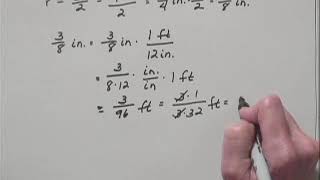 r = /2 = /2 = /4 in. · 1/2 = /8 in.
3/8 in. = 3/8 in. · 1 ft/12 in.
= 3/8·12 · in./in · 1 ft
= 3/96 ft = 3·1/3·32 ft =